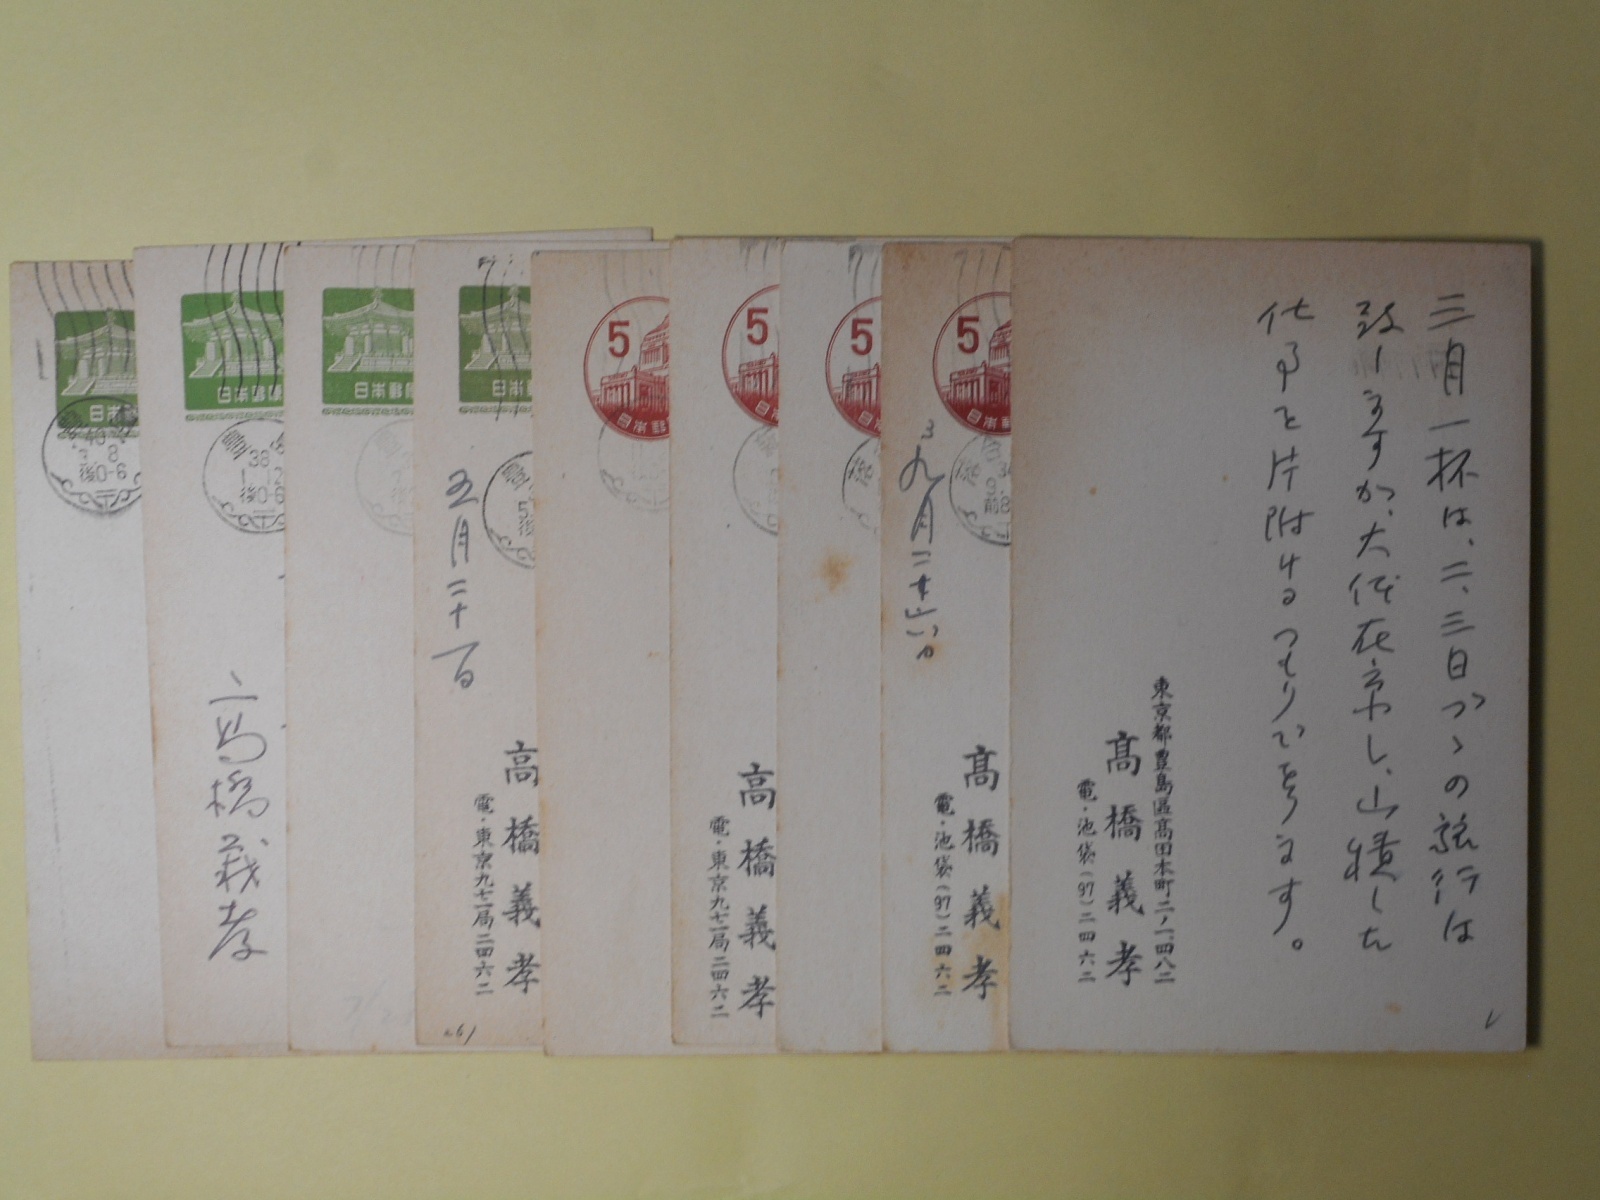 三月一杯は、二、三日づゝの旅行は
致しますが、大体在京し、山積した
仕事を片附けるつもりでをります。
東京都豊島區高田本町二ノ一四八二
髙橋義孝
電・池袋(97)二四六二
5
日本郵
九月二十六日
髙橋義孝
電・池袋(97)二四六二
5
日
5
日本
高橋義孝
電・東京九七一局二四六二
5
日本郵
日本郵
五月二十一日
高橋義孝
電・東京九七一局二四六二
日本郵
日本郵
38
後0-6
高橋義孝
日本
8
後0-6